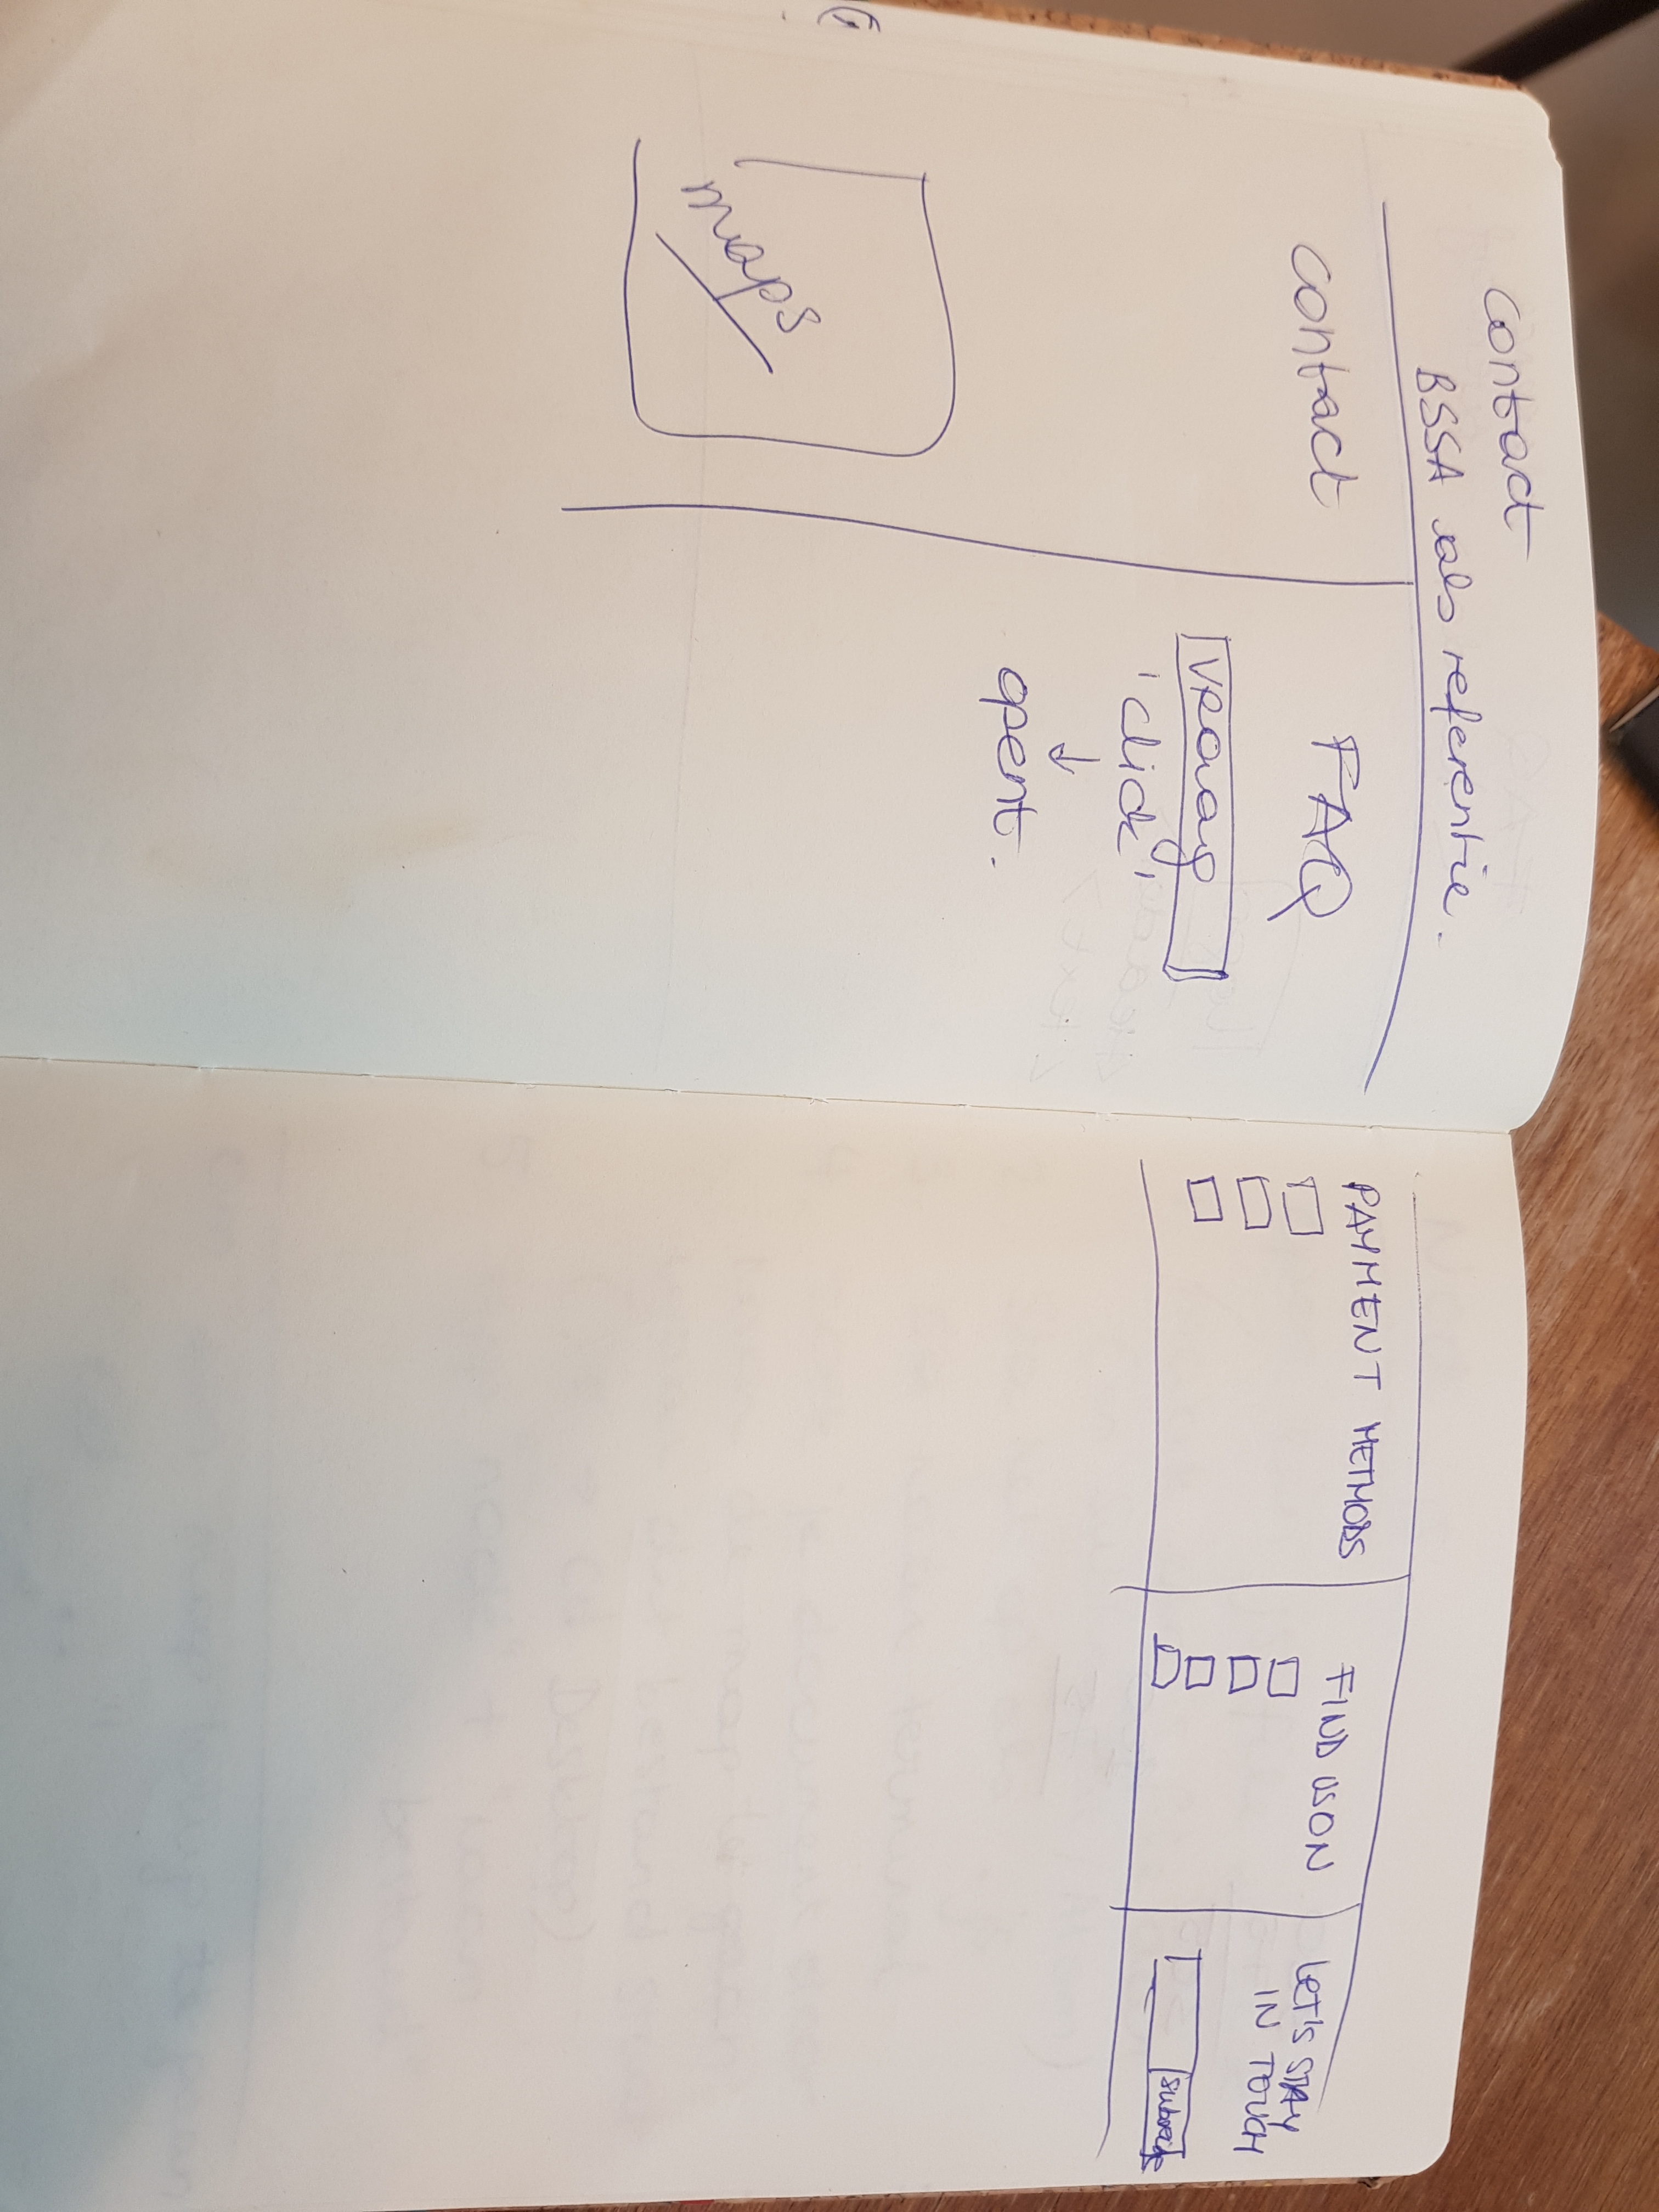 Contact
BSSA als referentie.
Contact
maps
FAQ
VRaag
'click'
↓
opent.
PAYMENT METHODS
FIND US ON
LET'S STAY
IN TOUCH